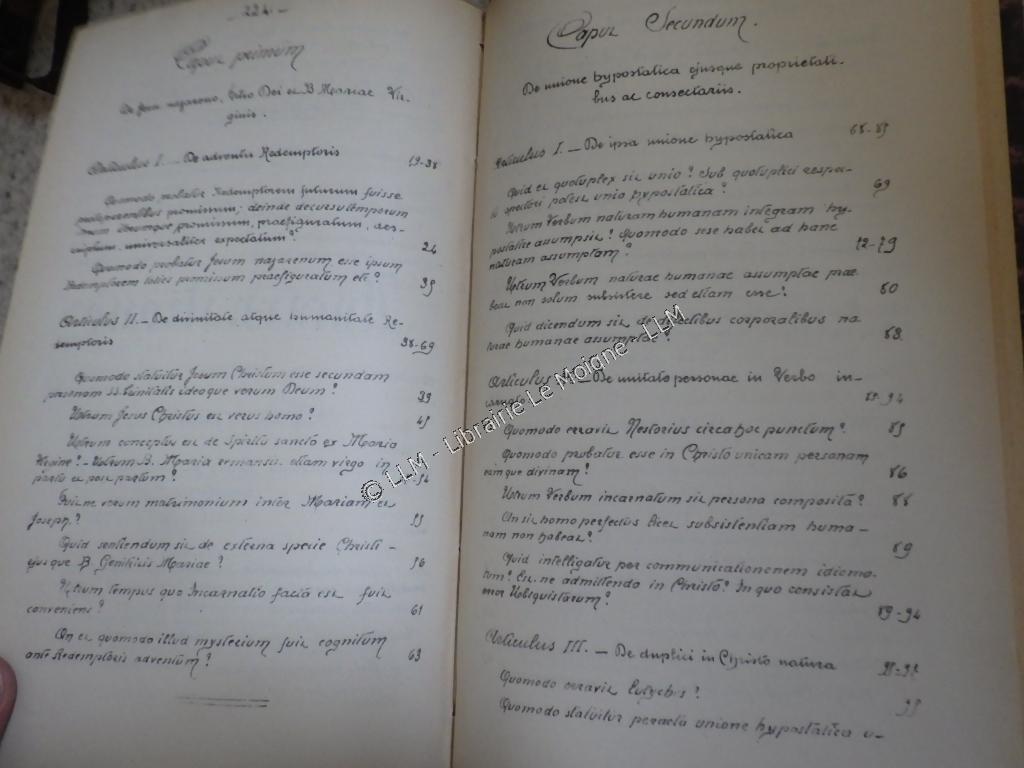 - 224 -
Caput primum
De Jesu nazareno, filio Dei et B. Mariae Vir-
ginis.
Articulus I. - De adventu Redemptoris 19-38
Quomodo probatur Redemptorem futurum fuisse
protoparentibus promissum; deinde decursu temporum
promissum, praefiguratum,
universaliter expectatum? 24
Quomodo probatur Jesum nazarenum esse ipsum
Redemptorem toties promissum praefiguratum etc? 35
Articulus II. - De divinitate atque humanitate Re-
demptoris 38-69
Quomodo statuitur Jesum Christum esse secundam
personam ss. trinitatis ideoque verum Deum? 39
Utrum Jesus Christus est verus homo? 45
Utrum conceptus est de Spiritu sancto ex Maria
Virgine? - Utrum B. Maria remansit etiam virgo in
partu et post partum? 52
Fuit ne verum matrimonium inter Mariam et
Joseph? 55
Quid sentiendum sit de externa specie Christi -
ejusque B. Genitricis Mariae? 56
Utrum tempus quo Incarnatio facta est fuit
conveniens? 61
An et quomodo illud mysterium fuit cognitum
ante Redemptoris adventum? 63
Caput Secundum.
De unione hypostatica ejusque proprietati-
bus ac consectariis.
Articulus I. - De ipsa unione hypostatica 68-85
Quid et quotuplex sit unio? Sub quotuplici respec-
tu spectari potest unio hypostatica? 69
Utrum Verbum naturam humanam integram hy-
postatice assumpsit? Quomodo sese habet ad hanc
naturam assumptam? 72-79
Utrum Verbum naturae humanae assumptae prae-
beat non solum subsistere sed etiam esse? 80
Quid dicendum sit de defectibus corporalibus na-
turae humanae assumptae? 83
Articulus - De unitate personae in Verbo in-
carnato 85-94
Quomodo erravit Nestorius circa hoc punctum? 85
Quomodo probatur esse in Christo unicam personam
eamque divinam? 86
Utrum Verbum incarnatum sit persona composita? 88
An sit homo perfectus licet subsistentiam huma-
nam non habeat? 89
Quid intelligatur per communicationem idioma-
tum? Est ne admittenda in Christo? In quo consistat
error Ubiquistarum? 89-94
Articulus III. - De duplici in Christo natura
Quomodo erravit Eutyches? 95
Quomodo statuitur peracta unione hypostatica u-
© LLM - Librairie Le Moigne - LLM